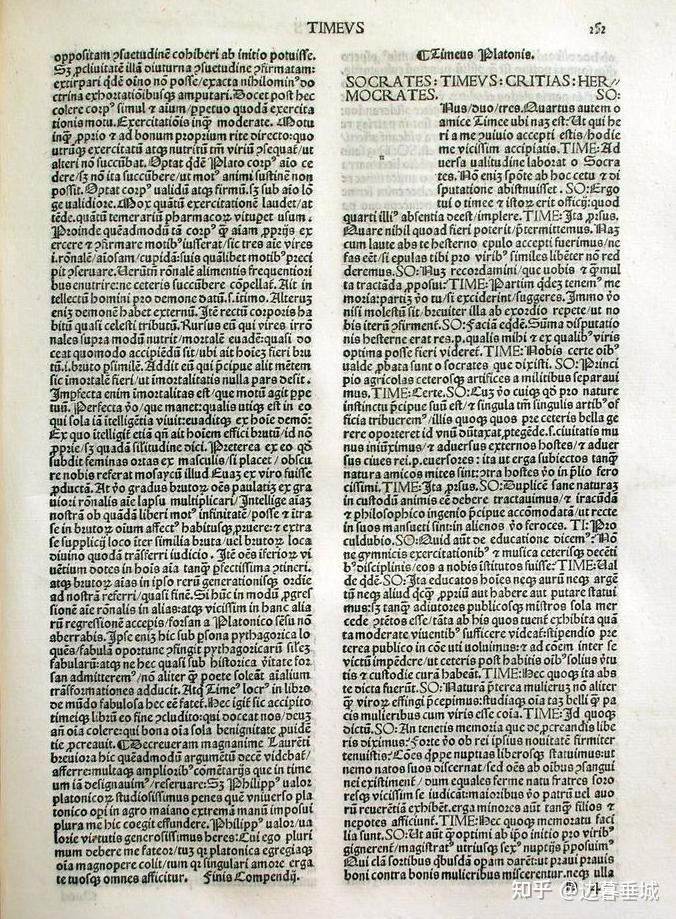 TIMEVS
252
oppositam ꝯsuetudinē cohiberi ab initio potuisse.
Sꝫ ꝓcliuitatē illā diuturna ꝯsuetudine ꝯfirmatam:
extirpari qdē oīno nō posse/exacta nihilomin⁹ do
ctrina exhortationibusqꝫ amputari. Docet post hec
colere corp⁹ simul ⁊ aīum/ꝑpetuo quodā exercita
tionis motu. Exercitatiōis inqꝫ moderate. Motu
inqꝫ ꝓprio ⁊ ad bonum proprium rite directo: quo
utrūqꝫ exercitatū atqꝫ nutritū tm̄ viriū ꝯsequat̄/ut
alteri nō succūbat. Optat qdē Plato corp⁹ aīo ce
dere/sꝫ nō ita succūbere/ut mot⁹ animi sustinē non
possit. Optat corp⁹ ualidū atqꝫ firmū. sꝫ sub aīo lō
ge ualidiore. Mox quātū exercitationē laudet/at
tēde. quātū temerariū pharmacoꝝ vitupet usum.
Proinde quēadmodū tā corp⁹ qꝫ aīam ꝓprijs ex
ercere ⁊ ꝯfirmare motib⁹ iusserat/sic tres aīe vires
i. rōnalē/aīosam/cupidā: suis quālibet motib⁹ preci
pit ꝯseruare. Uerūtn̄ rōnalē alimentis frequentiori
bus enutrire: ne ceteris succūbere cōpellat̄. Ait in
tellectū homini pro demone datū. s. itimo. Alterūꝫ
enīꝫ demonē habet externū. Itē rectū corporis ha
bitū quasi celesti tributū. Rursus eū qui vires irrō
nales supra modū nutrit/mortalē euadē: quasi do
ceat quomodo accipiēdū sit/ubi ait hoīeꝫ fieri bru
tū. i. bruto ꝑsimilē. Addit eū qui p̄cipue alit mētem
sic imortalē fieri/ut imortalitatis nulla pars desit.
Impfecta enim imortalitas est/que motū agit ꝑpe
tuū. Perfecta v̄o/que manet: qualis utiqꝫ est in eo
qui sola iā itelligētia viuit: euaditqꝫ ex hoīe demō:
Ex quo itelligit̄ etiā qn̄ ait hoīem effici brutū/id nō
ꝓprie/sꝫ quadā silitudine dici. Preterea ex eo qd̄
subdit feminas ortas ex masculis/si placet/obscu
re nobis referat mosaycū illud Euaꝫ ex viro fuisse
ꝓductā. At v̄o gradus brutoꝝ oēs paulatiꝫ ex gra
uiori rōnalis aīe lapsu multiplicari/Intellige aīaꝫ
nostrā ob quādā liberi mot⁹ infinitatē/posse ⁊ itra
se in brutoꝝ oīum affect⁹ habitusqꝫ ꝓruere: ⁊ extra
se supplicij loco iter similia bruta/uel brutoꝝ loca
diuino quodā trāsferri iudicio. Itē oēs iferioꝝ vi
uētium dotes in hoīs aīa tanqꝫ ꝑfectissima ꝯtineri.
atqꝫ brutoꝝ aīas in ipso rerū generationisqꝫ ordīe
ad nostrā referri/quasi finē. Si hūc in modū ꝓgres
sionē aīe rōnalis in alias: atqꝫ vicissim in hanc alia
rū regressionē accepis/forsan a Platonico sēsu nō
aberrabis. Ipse enīꝫ hic sub ꝑsona pythagorica lo
quēs/fabulā oportune ꝯfingit pythagoricarū silesꝫ
fabularū: atqꝫ ne hec quasi sub historica v̄itate for
san admitterem⁹/no aliter qꝫ poete soleāt aīalium
trāsformationes adducit. Atqꝫ Time⁹ locr⁹ in libro
de mūdo fabulosa hec eē fatet̄. Hec igit̄ sic accipito
timeiqꝫ librū eo fine ꝯcludito: qui doceat nos/deuꝫ
an oīa colere: qui bona oīa sola benignitate ꝓuidē
tie ꝓcreauit. ¶Decreueram magnanime Laurēti
breuiora hic quēadmodū argumētū decē videbat̄/
afferre: multaqꝫ ampliorib⁹ cōmētarijs que in time
um iā designauim⁹/reseruare: Sꝫ Philipp⁹ ualor
platonicoꝝ studiosissimus penes quē vniuerso pla
tonico opi in agro maiano extremā manū imposui
plura me hic coegit effundere. Philipp⁹ ualor/ua
lorie virtutis generosissimus heres: Cui ego pluri
mum debere me fateor/tuꝫ qꝫ platonica egregiaqꝫ
oīa magnopere colit/tum qꝫ singulari amore erga
te tuosqꝫ omnes afficitur. Finis Compendij.
¶Timeus Platonis.
SOCRATES: TIMEVS: CRITIAS: HER//
MOCRATES. SO:
Nus/duo/tres. Quartus autem o
amice Timee ubi naꝫ est: Ut qui he
ri a me ꝯuiuio accepti estis/hodie
me vicissim accipiatis. TIME: Ad
uersa ualitudine laborat o Socra
tes. Nō enīꝫ spōte ab hoc cetu ⁊ di
sputatione abstinuisset. SO: Ergo
tui o timee ⁊ istoꝝ erit officij: quod
quarti illi⁹ absentia deest/implere. TIME: Ita ꝓrsus.
Quare nihil quod fieri poterit/p̄termittemus. Nāꝫ
cum laute abs te hesterno epulo accepti fuerimus/ne
fas eēt/si epulas tibi pro virib⁹ similes libēter nō red
deremus. SO: Nuꝫ recordamini/que uobis ⁊ qꝫ mul
ta tractāda ꝓposui: TIME: Partim qdeꝫ tenem⁹ me
moria: partiꝫ v̄o tu/si exciderint/suggeres. Immo v̄o
nisi molestū sit/breuiter illa ab exordio repete/ut no
bis iterū ꝯfirment. SO: Faciā eqdē. Sūma disputatio
nis hesterne erat res. p. qualis mihi ⁊ ex qualib⁹ viris
optima posse fieri videret̄. TIME: Nobis certe oīb⁹
ualde ꝓbata sunt o socrates que dixisti. SO: Princi
pio agricolas ceterosqꝫ artifices a militibus separaui
mus. TIME: Certe. SO: Cuꝫ v̄o cuiqꝫ qd̄ pro nature
instinctu p̄cipue suū est/⁊ singula tm̄ singulis artib⁹ of
ficia tribuerem⁹/illis quoqꝫ quos pre ceteris bella ge
rere oporteret id vnū dūtaxat ꝓtegēde. s. ciuitatis mu
nus iniūximus/⁊ aduersus externos hostes/⁊ aduer
sus ciues rei. p. euersores: ita ut erga subiectos tanqꝫ
natura amicos mites sint: ꝯtra hostes v̄o in p̄lio fero
cissimi. TIME: Ita ꝓrsus. SO: Duplicē sane naturaꝫ
in custodū animis eē debere tractauimus/⁊ iracūdā
⁊ philosophico ingenio p̄cipue accōmodatā/ut recte
in suos mansueti sint: in alienos v̄o feroces. TI: Pro
culdubio. SO: Quid aūt de educatione dicem⁹: Nō
ne gymnicis exercitationib⁹ ⁊ musica ceterisqꝫ decēti
b⁹ disciplinis/eos a nobis institutos fuisse: TIME: Ual
de qdē. SO: Ita educatos hoīes neqꝫ aurū neqꝫ argē
tū neqꝫ aliud qcqꝫ ꝓpriū aut habere aut putare statui
mus: sꝫ tanqꝫ adiutores publicosqꝫ mistros sola mer
cede ꝯtētos esse/tāta ab his quos tuent̄ exhibita quā
ta moderate viuentib⁹ sufficere videat̄: stipendio pre
terea publico in cōe uti uoluimus: ⁊ ad cōem inter se
victū impēdere/ut ceteris post habitis oīb⁹ solius v̄tu
tis ⁊ custodie curā habeāt. TIME: Hec quoqꝫ ita abs
te dicta fuerūt. SO: Naturā p̄terea mulierūꝫ nō aliter
qꝫ viroꝝ effingi p̄cepimus: studiaqꝫ oīa taꝫ belli qꝫ pa
cis mulieribus cum viris esse cōīa. TIME: Id quoqꝫ
dictū. SO: An tenetis memoria que de ꝓcreandis libe
ris diximus: Forte v̄o ob rei ipsius nouitatē firmiter
tenuistis: Cōes qppe nuptias liberosqꝫ statuimus: ut
nemo natos suos discernat/sed oēs ab oībus ꝯsangui
nei existiment/dum equales ferme natu fratres soro
resqꝫ vicissim se iudicāt: maioribus v̄o patrū uel auo
rū reuerētiā exhibēt. erga minores aūt tanqꝫ filios ⁊
nepotes afficiunt. TIME: Hec quoqꝫ memoratu faci
lia sunt. SO: Ut aūt qꝫ optimi ab ip̄o initio pro virib⁹
gignerent̄/magistrat⁹ utriusqꝫ sex⁹ nuptijs p̄posuim⁹
Qui clā sortibus qbusdā opam darēt: ut praui prauis
boni contra bonis mulieribus miscerentur. neqꝫ ulla
知乎 @边暮垂城